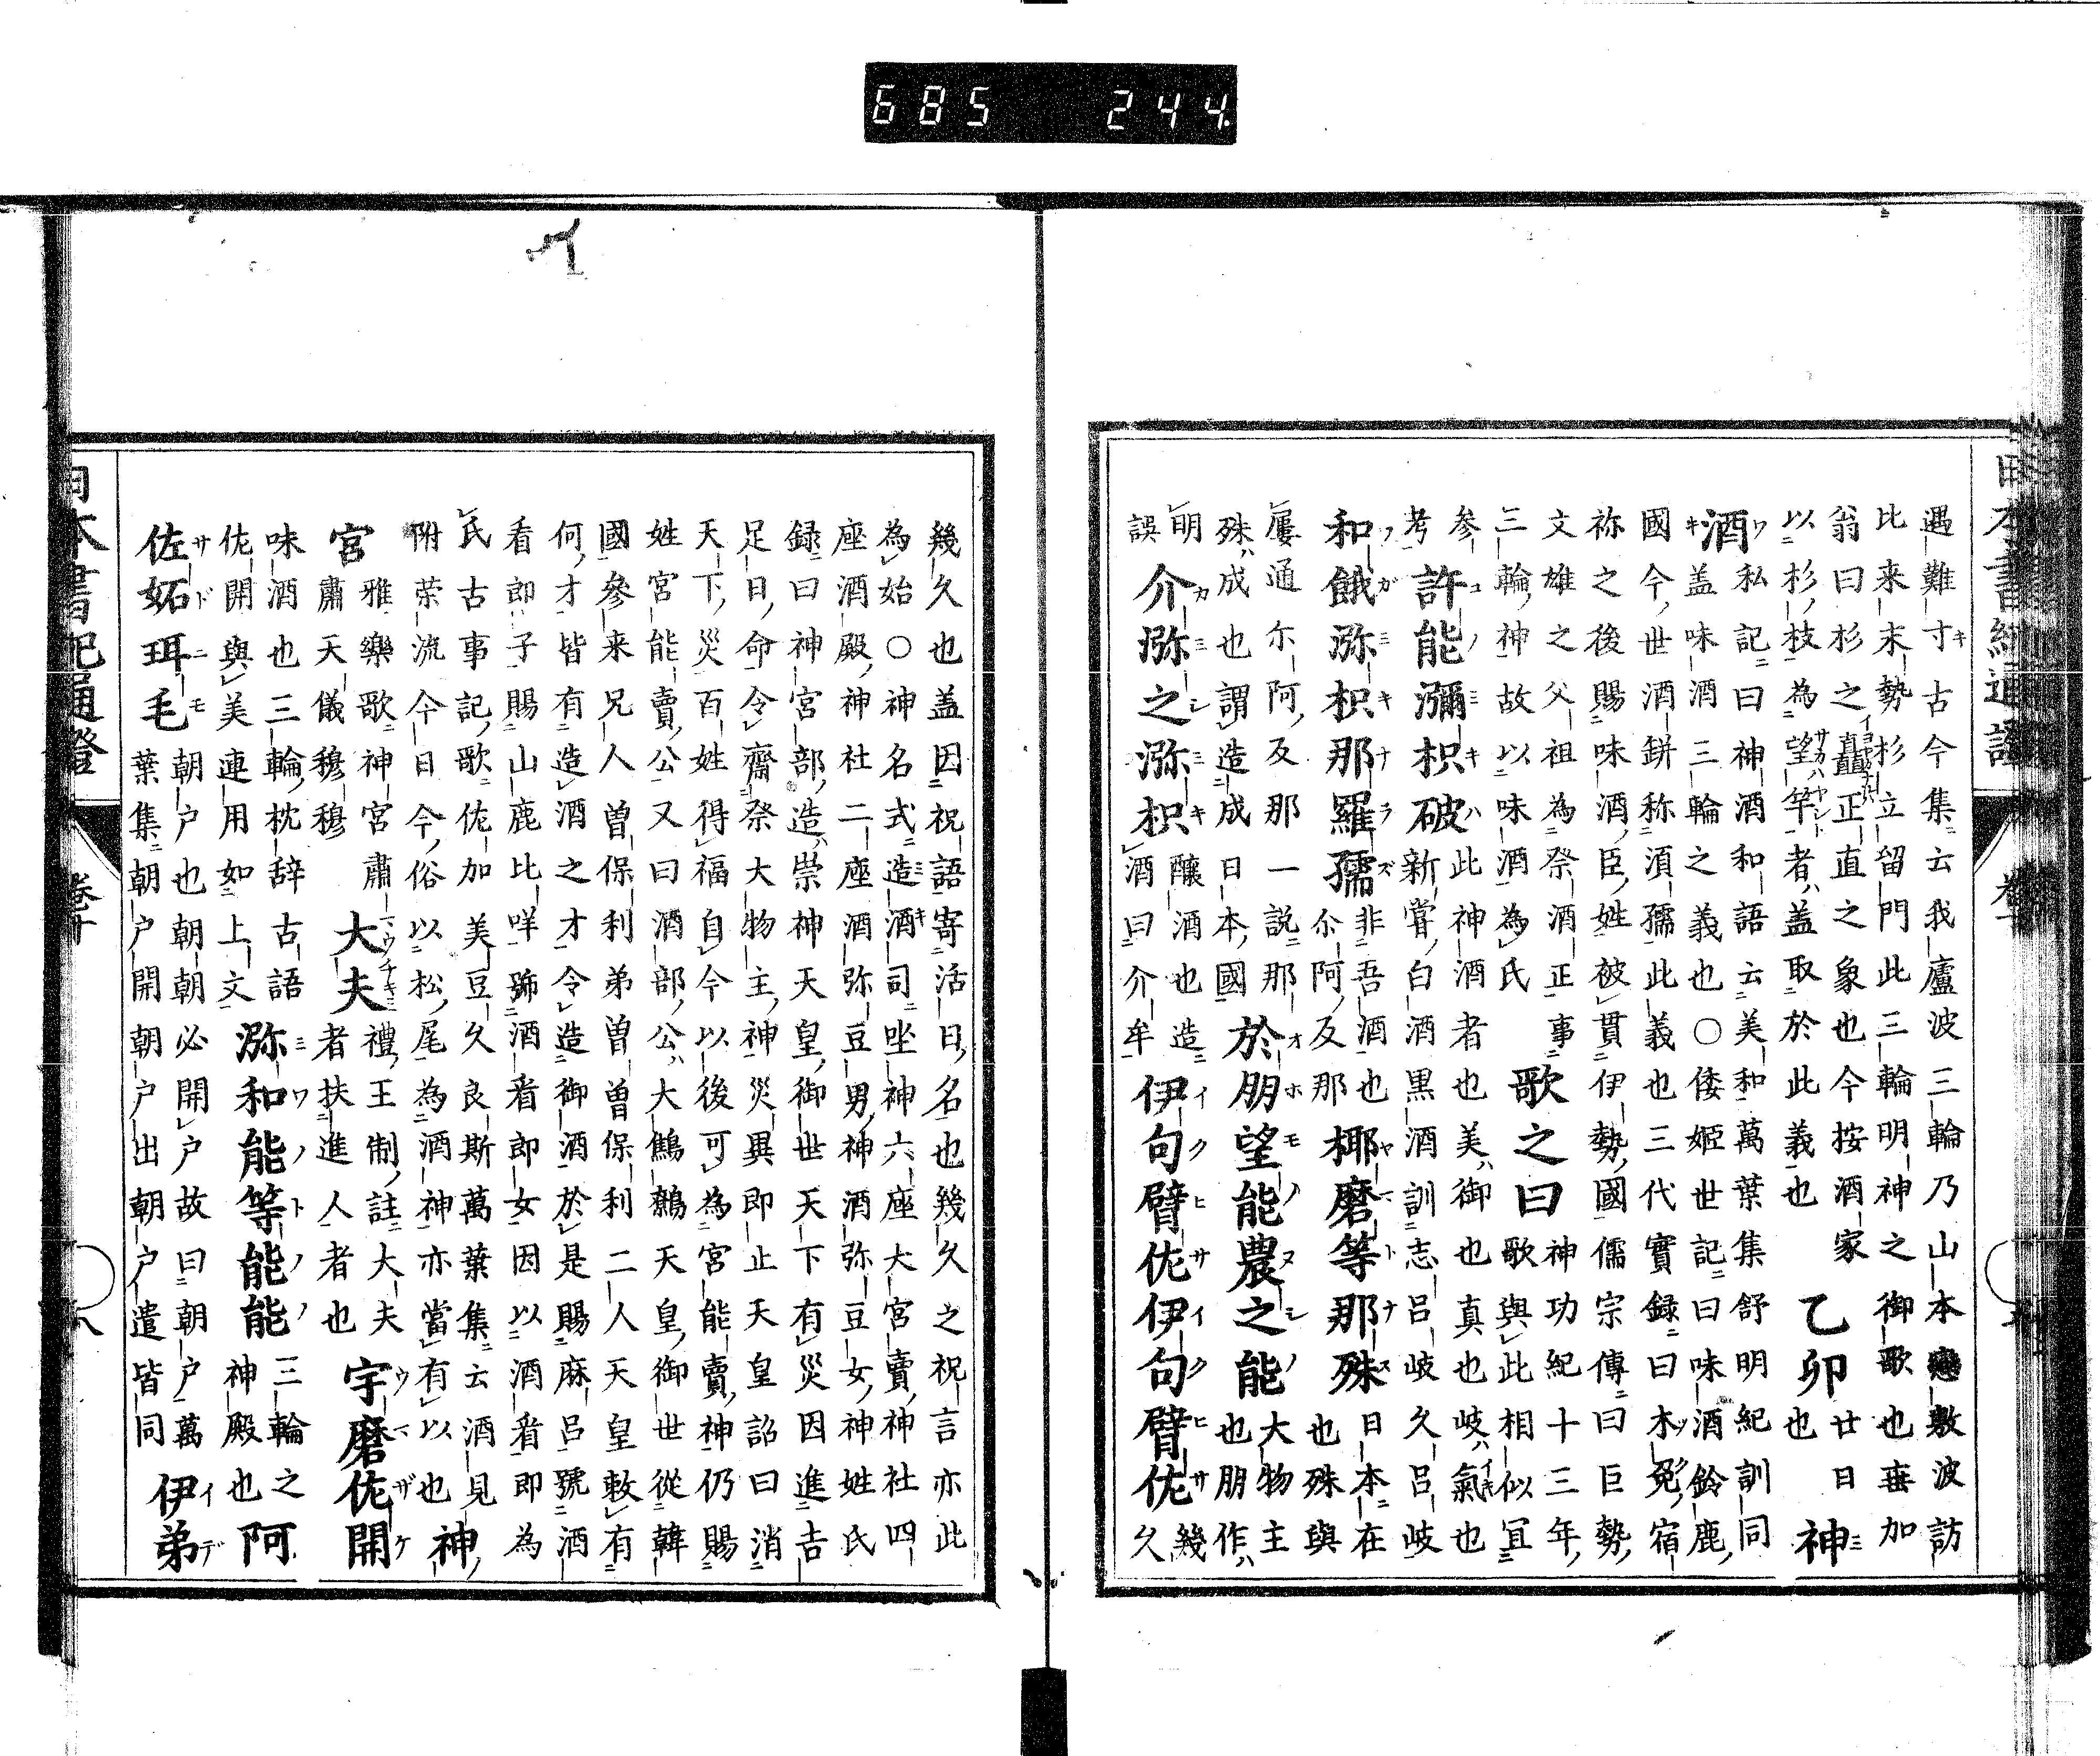 685 244
遇難寸古今集云我廬波三輪乃山本戀敷波訪
比来末勢杉立留門此三輪明神之御歌也垂加
翁曰杉之矗正直之象也今按酒家
以杉枝為望竿者盖取於此義也
乙卯
廿日
也
神
酒
私記曰神酒和語云美和萬葉集舒明紀訓同
盖味酒三輪之義也○倭姫世記曰味酒鈴鹿
國今世酒缾称須孺此義也三代實録曰木兔宿
祢之後賜味酒臣姓被貫伊勢國儒宗傳曰巨勢
文雄之父祖為祭酒正事
三輪神故以味酒為氏
歌之曰
神功紀十三年
歌與此相似冝
参
考
許能瀰枳破
此神酒者也美御也真也岐氣也
新嘗白酒黒酒訓志呂岐久呂岐
和餓瀰枳那羅孺
非吾酒也
尒阿反那
椰磨等那殊
日本在
也殊與
屢通尒阿反那一説那
殊成也謂造成日本國
於朋望能農之能
大物主
也朋作
明
誤
介瀰之瀰枳
釀酒也造
酒曰介牟
伊句臂佐伊句臂佐
幾
久
幾久也盖因祝語寄活日名也幾久之祝言亦此
為始○神名式造酒司坐神六座大宮賣神社四
座酒殿神社二座酒弥豆男神酒弥豆女神姓氏
録曰神宮部造崇神天皇御世天下有災因進吉
足日命令齋祭大物主神災異即止天皇詔曰消
天下災百姓得福自今以後可為宮能賣神仍賜
姓宮能賣公又曰酒部公大鷦鷯天皇御世從韓
國參来兄人曽保利弟曽曽保利二人天皇敕有
何才皆有造酒之才令造御酒於是賜麻呂號酒
看郎子賜山鹿比咩號酒看郎女因以酒看即為
氏古事記歌佐加美豆久良斯萬葉集云酒見
附荣流今日今俗以松尾為酒神亦當有以也
神
宮
雅樂歌神宮肅
肅天儀穆穆
大夫
禮王制註大夫
者扶進人者也
宇磨佐開
味酒也三輪枕辞古語
佐開與美連用如上文
瀰和能等能能
三輪之
神殿也
阿
佐妬珥毛
朝户也朝朝必開户故曰朝户萬
葉集朝户開朝户出朝户遣皆同
伊弟
日本書紀通證